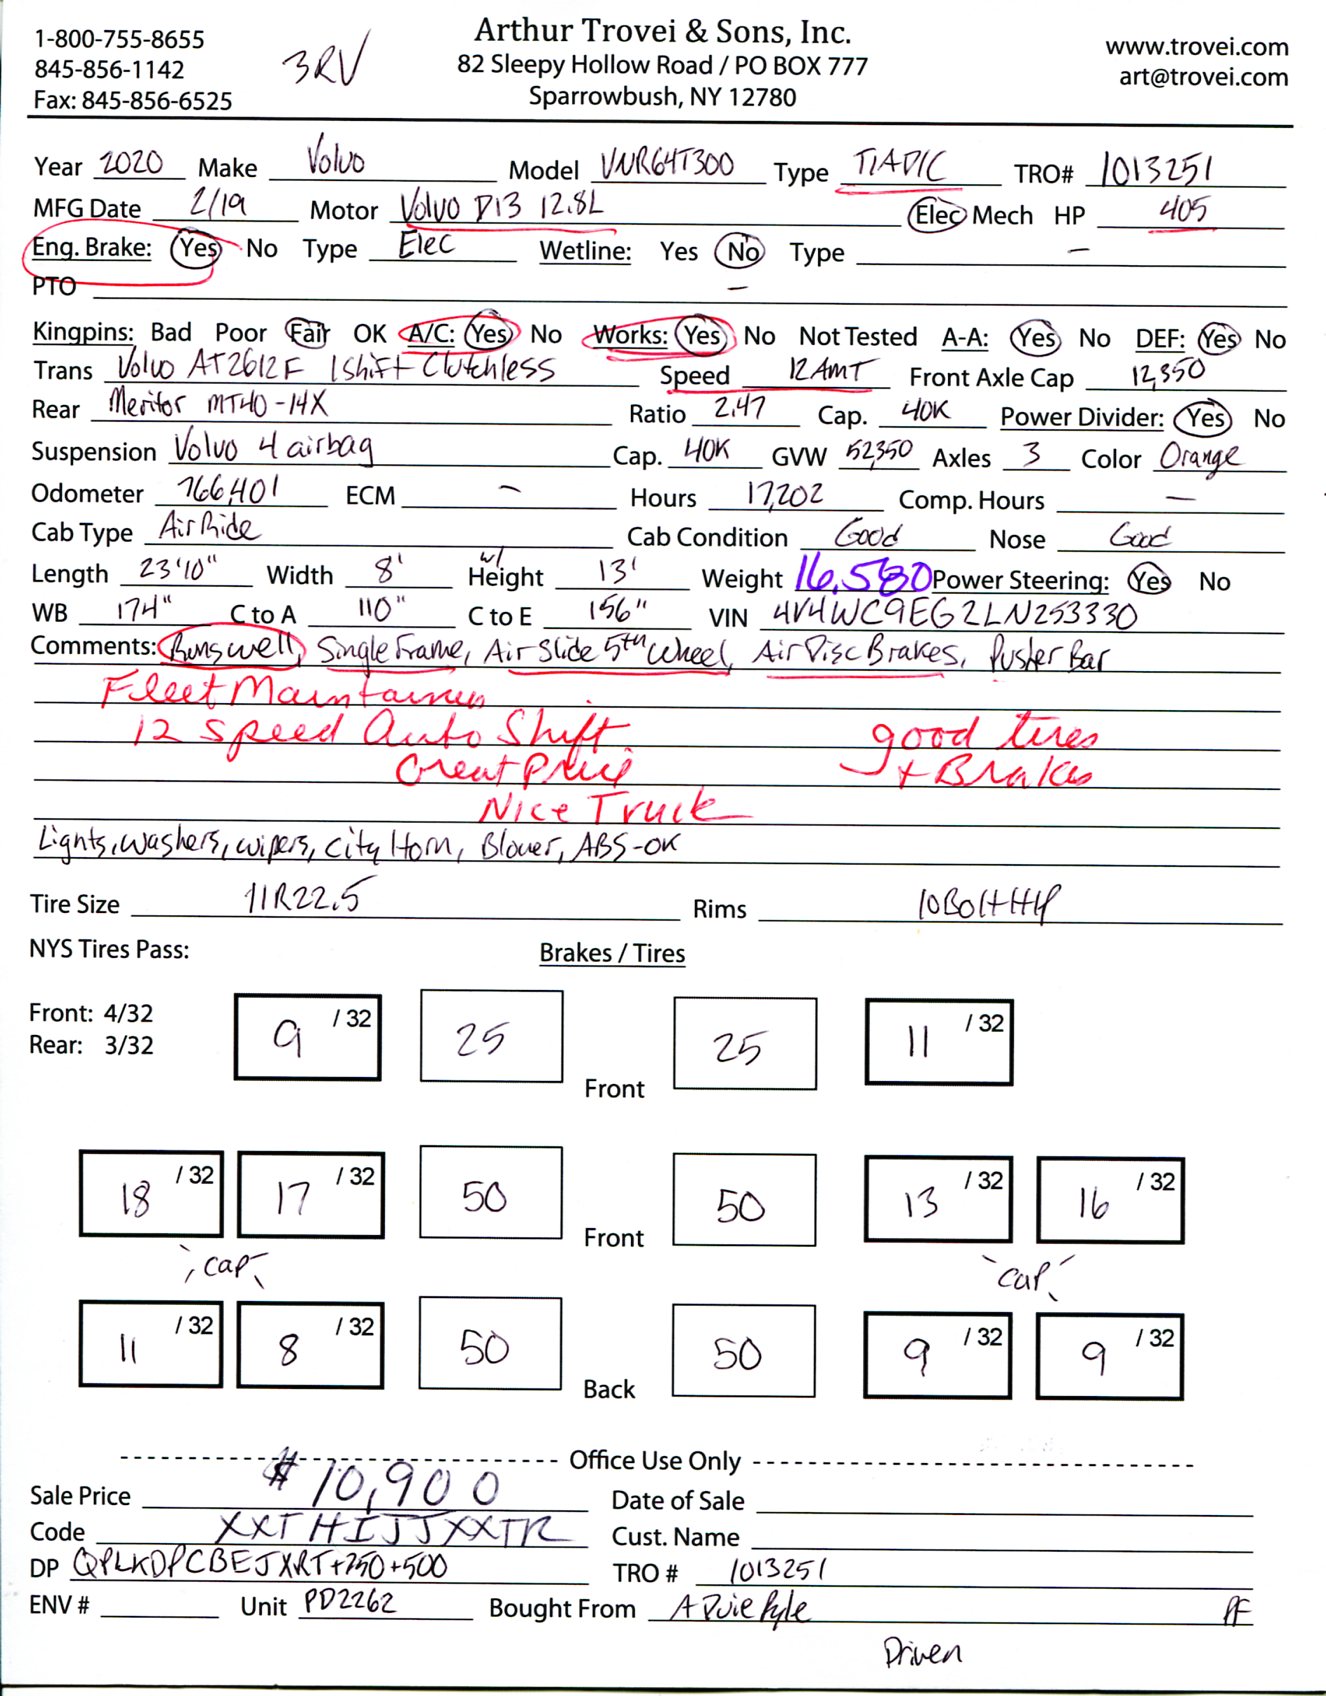 1-800-755-8655
845-856-1142
Fax: 845-856-6525
3RV
Arthur Trovei & Sons, Inc.
82 Sleepy Hollow Road / PO BOX 777
Sparrowbush, NY 12780
www.trovei.com
art@trovei.com
Year 2020 Make Volvo Model VNR64T300 Type T/A D/C TRO# 1013251
MFG Date 2/19 Motor Volvo D13 12.8L Elec Mech HP 405
Eng. Brake: Yes No Type Elec Wetline: Yes No Type -
PTO -
Kingpins: Bad Poor Fair OK A/C: Yes No Works: Yes No Not Tested A-A: Yes No DEF: Yes No
Trans Volvo AT2612F IShift Clutchless Speed 12 AMT Front Axle Cap 12,350
Rear Meritor MT40-14X Ratio 2.47 Cap. 40K Power Divider: Yes No
Suspension Volvo 4 airbag Cap. 40K GVW 52,350 Axles 3 Color Orange
Odometer 766,401 ECM - Hours 17,202 Comp. Hours -
Cab Type Air Ride Cab Condition Good Nose Good
Length 23'10" Width 8' w/ Height 13' Weight 16,580 Power Steering: Yes No
WB 174" C to A 110" C to E 156" VIN 4V4WC9EG2LN253330
Comments: Runs well, Single Frame, Air Slide 5th Wheel, Air Disc Brakes, Puster Bar
Fleet Maintained
12 Speed Auto Shift good tires
Great Price + Brakes
Nice Truck
Lights, washers, wipers, City Horn, Blower, ABS-OK
Tire Size 11R22.5 Rims 10 Bolt HP
NYS Tires Pass: Brakes / Tires
Front: 4/32
Rear: 3/32
9 /32 25 Front 25 11 /32
18 /32 17 /32 50 Front 50 13 /32 16 /32
cap cap
11 /32 8 /32 50 Back 50 9 /32 9 /32
Office Use Only
Sale Price $10,900 Date of Sale
Code XXTHIJJXXTR Cust. Name
DP QPLKDPCBEJXRT+250+500 TRO # 1013251
ENV # Unit PD2262 Bought From A Duie Pyle PF
Driven